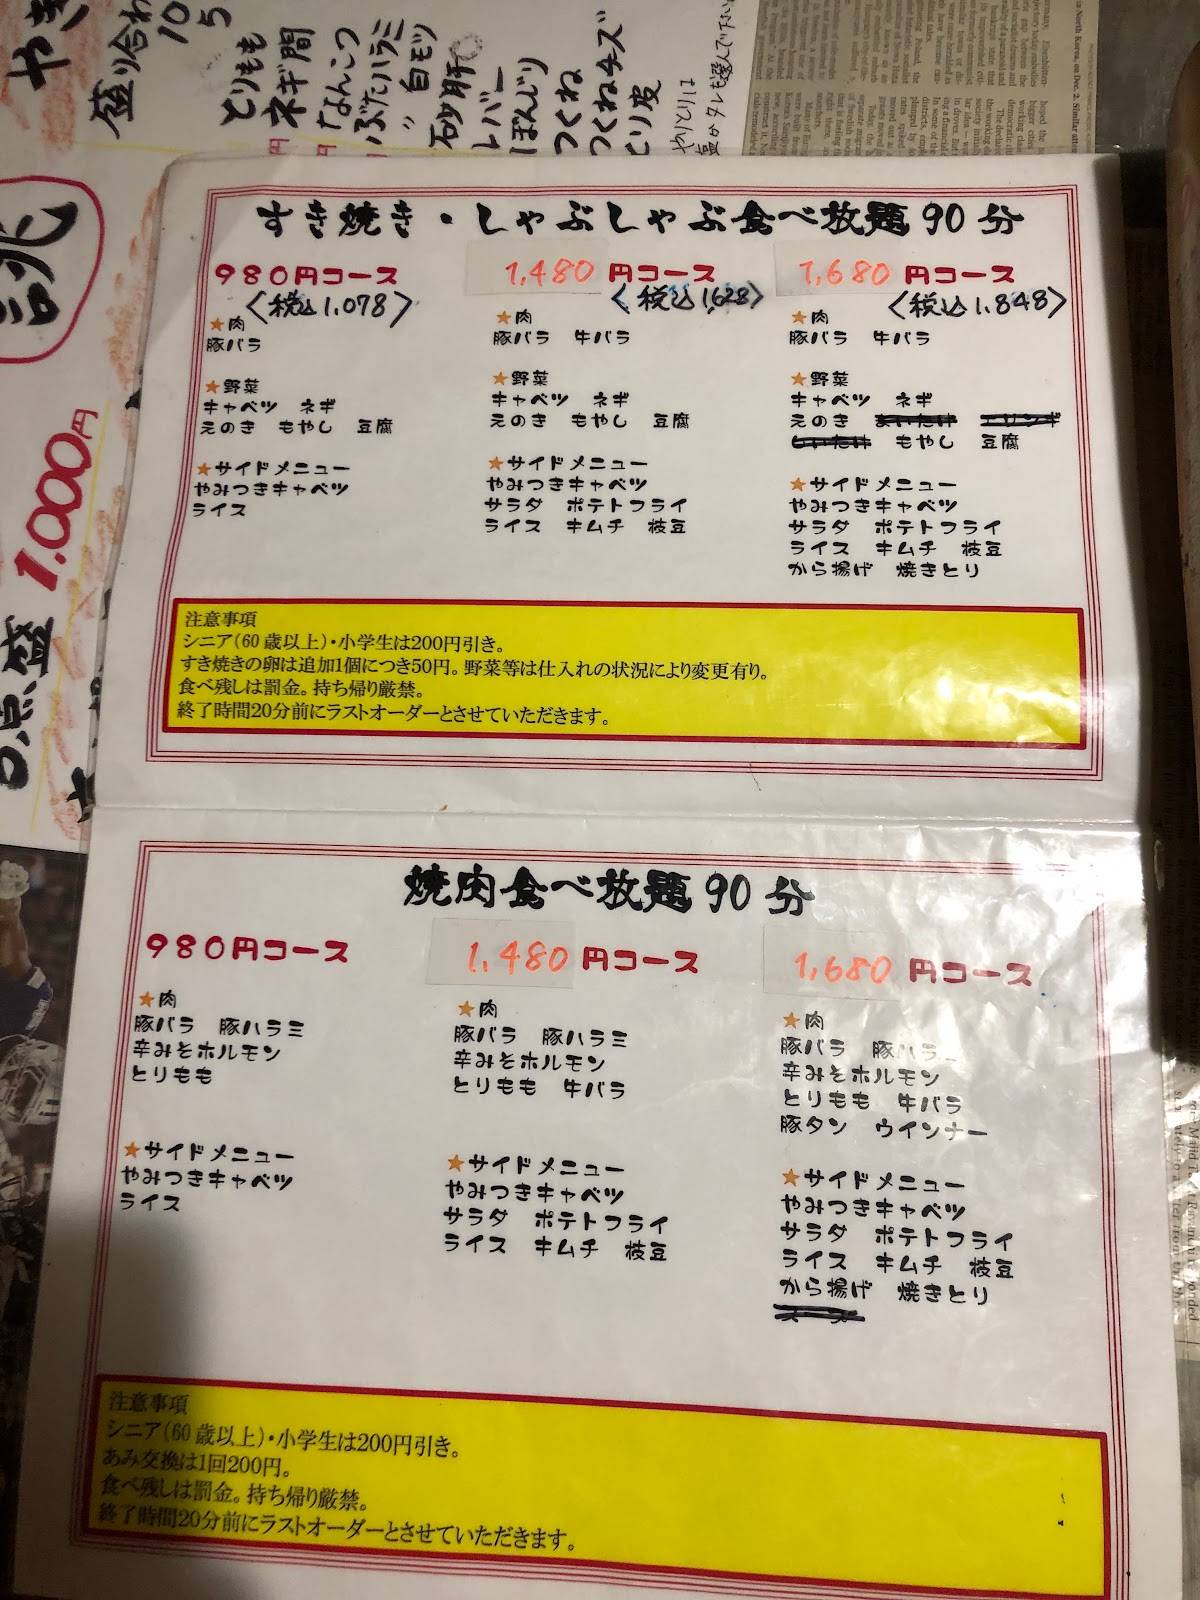 やき
盛り合わ
10
5
とりもも
ネギ間
なんこつ
ぶたハラミ
〃 白モツ
石少肝
レバー
ぼんじり
つくね
つくねチーズ
とり皮
やきとりは
塩かタレを選んで下さい
1,000円
点盛
すき焼き・しゃぶしゃぶ食べ放題90分
980円コース
〈税込1,078〉
★肉
豚バラ
★野菜
キャベツ ネギ
えのき もやし 豆腐
★サイドメニュー
やみつきキャベツ
ライス
1,480円コース
〈税込1,628〉
★肉
豚バラ 牛バラ
★野菜
キャベツ ネギ
えのき もやし 豆腐
★サイドメニュー
やみつきキャベツ
サラダ ポテトフライ
ライス キムチ 枝豆
1,680円コース
〈税込1,848〉
★肉
豚バラ 牛バラ
★野菜
キャベツ ネギ
えのき まいたけ エリンギ
しいたけ もやし 豆腐
★サイドメニュー
やみつきキャベツ
サラダ ポテトフライ
ライス キムチ 枝豆
から揚げ 焼きとり
注意事項
シニア(60歳以上)・小学生は200円引き。
すき焼きの卵は追加1個につき50円。野菜等は仕入れの状況により変更有り。
食べ残しは罰金。持ち帰り厳禁。
終了時間20分前にラストオーダーとさせていただきます。
焼肉食べ放題90分
980円コース
★肉
豚バラ 豚ハラミ
辛みそホルモン
とりもも
★サイドメニュー
やみつきキャベツ
ライス
1,480円コース
★肉
豚バラ 豚ハラミ
辛みそホルモン
とりもも 牛バラ
★サイドメニュー
やみつきキャベツ
サラダ ポテトフライ
ライス キムチ 枝豆
1,680円コース
★肉
豚バラ 豚ハラミ
辛みそホルモン
とりもも 牛バラ
豚タン ウインナー
★サイドメニュー
やみつきキャベツ
サラダ ポテトフライ
ライス キムチ 枝豆
から揚げ 焼きとり
注意事項
シニア(60歳以上)・小学生は200円引き。
あみ交換は1回200円。
食べ残しは罰金。持ち帰り厳禁。
終了時間20分前にラストオーダーとさせていただきます。